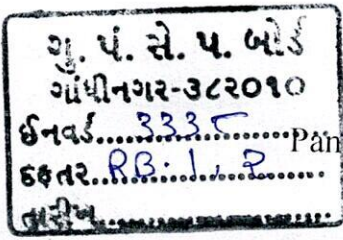 ગુ. પં. સે. પ. બોર્ડ
ગાંધીનગર-૩૮૨૦૧૦
ઈનવર્ડ....333......... Pan
દફતર..RB.1, 2.......
તારીખ....................